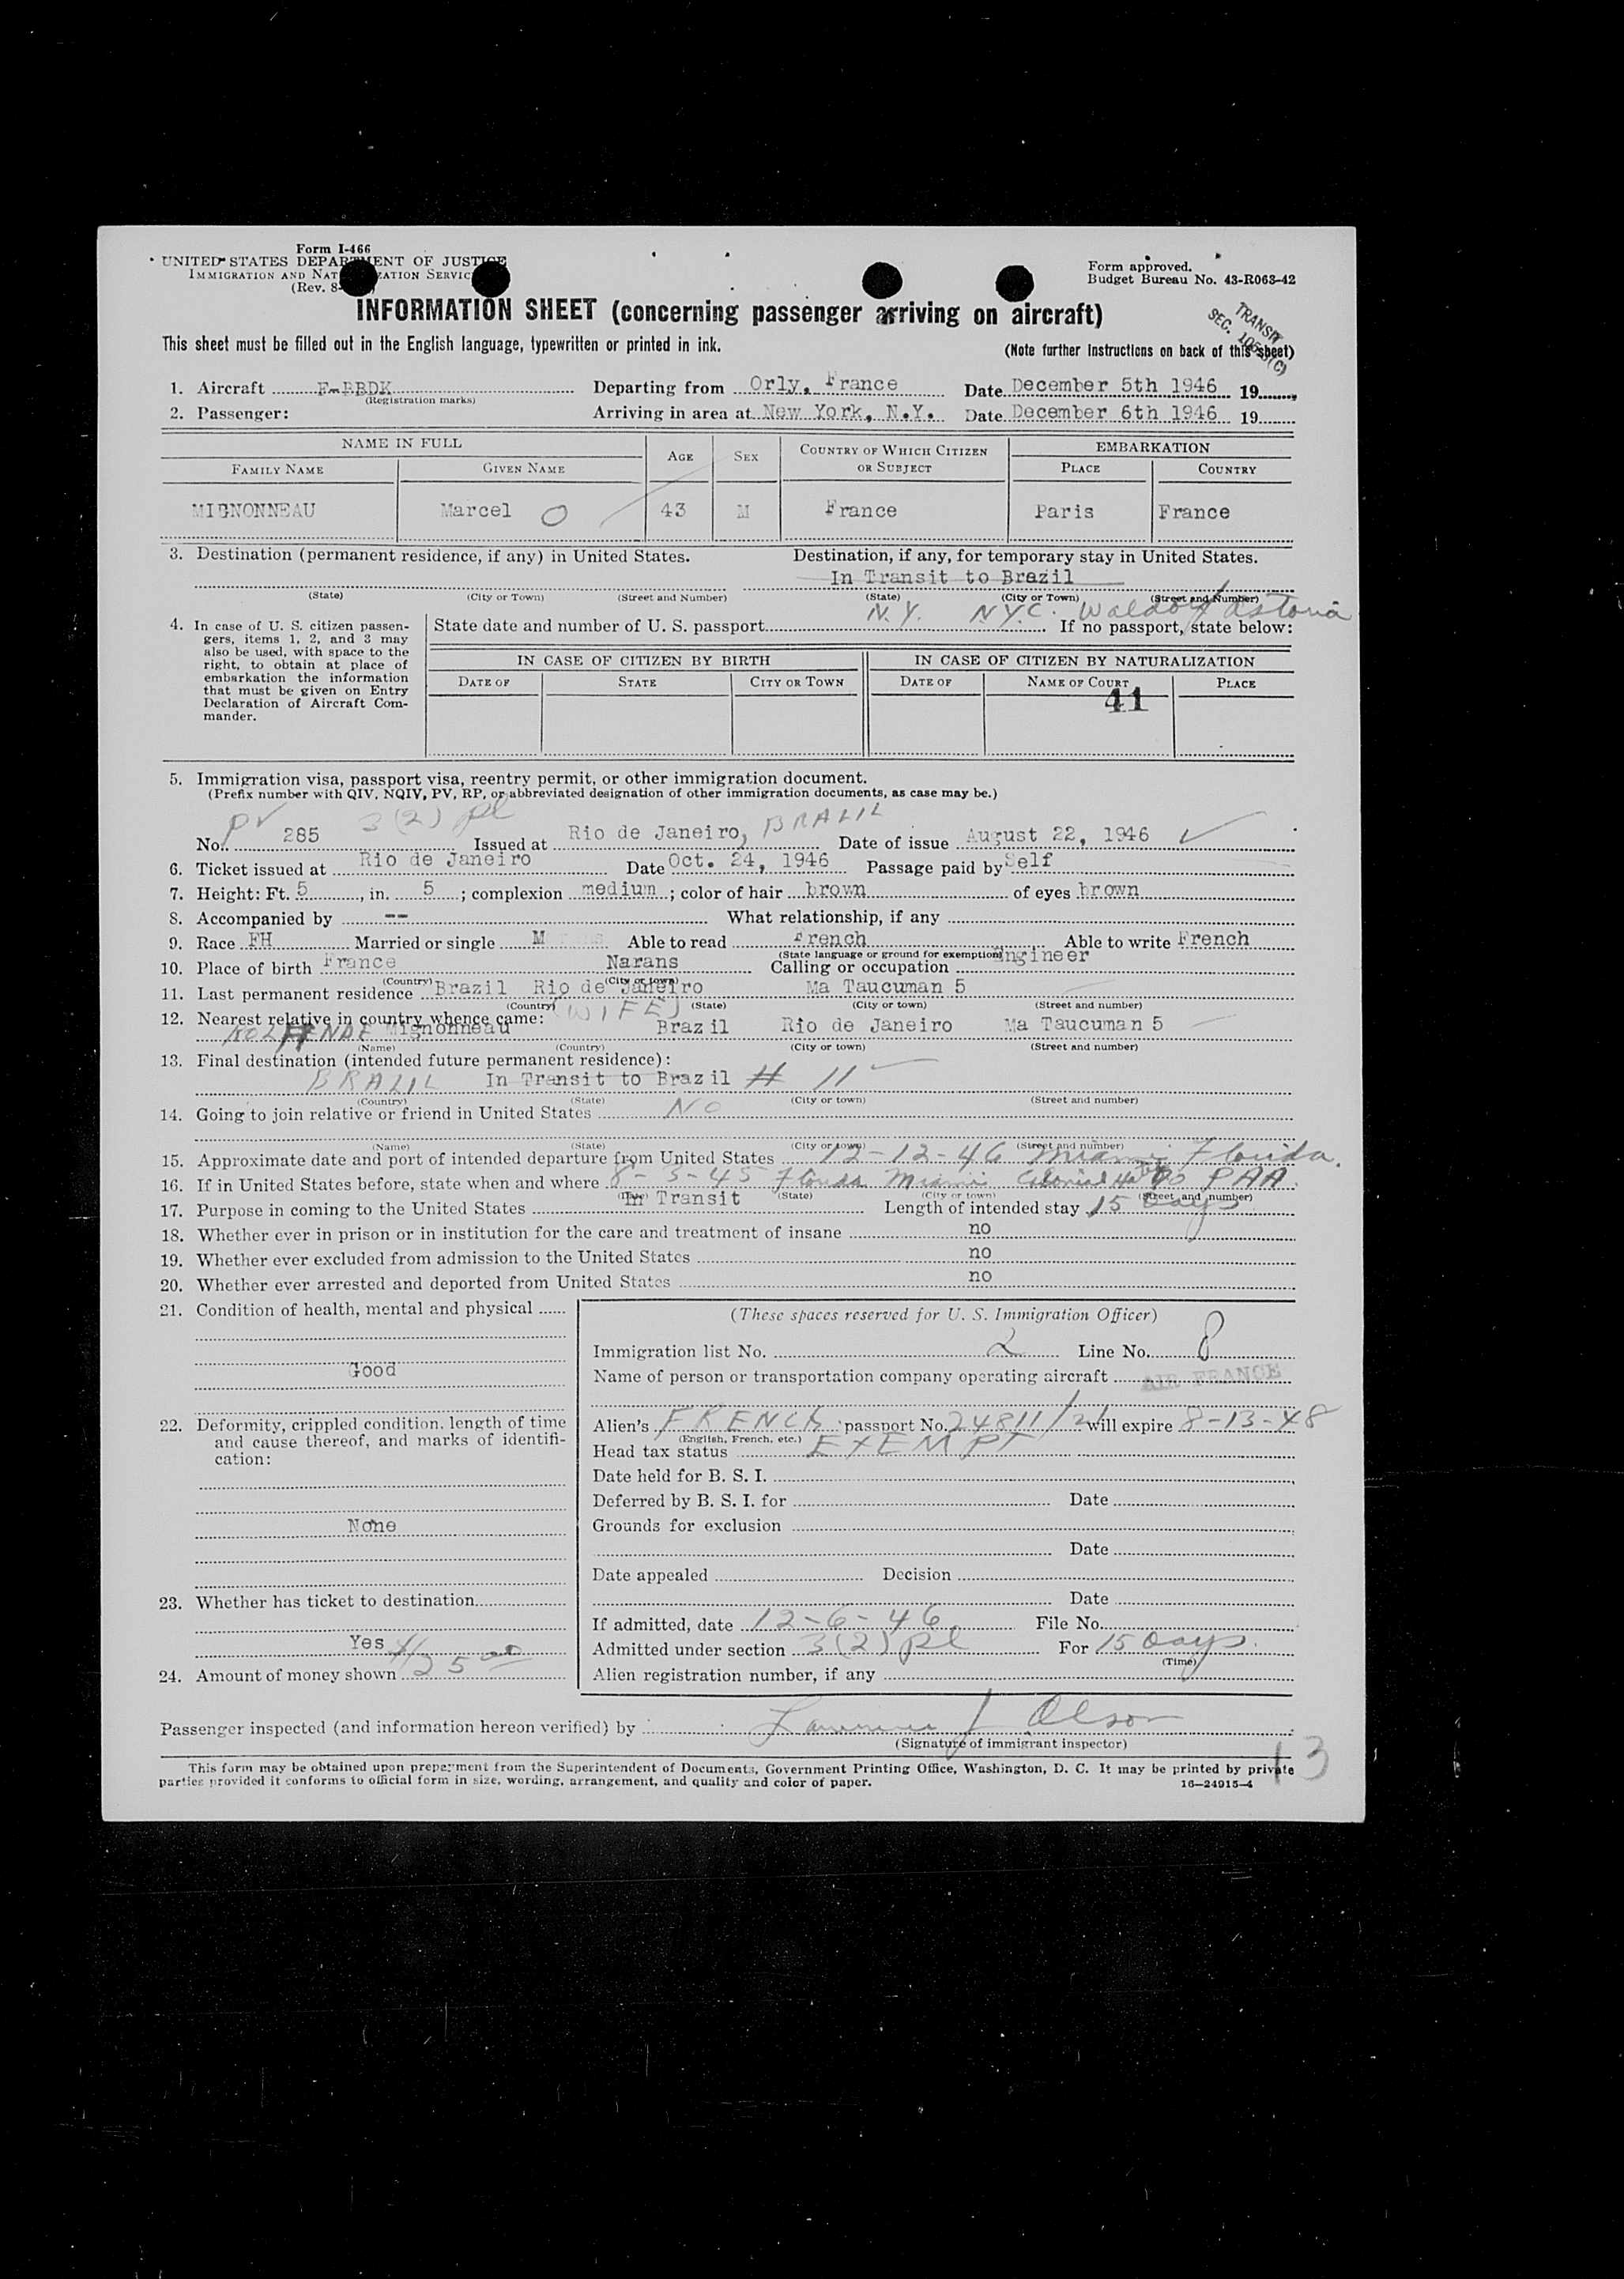 Form I-466
UNITED STATES DEPARTMENT OF JUSTICE
IMMIGRATION AND NATURALIZATION SERVICE
(Rev. 8-
Form approved.
Budget Bureau No. 43-R063-42
INFORMATION SHEET (concerning passenger arriving on aircraft)
TRANSIT
SEC.
This sheet must be filled out in the English language, typewritten or printed in ink.
(Note further Instructions on back of this sheet)
1. Aircraft F-BBDK Departing from Orly, France Date December 5th 1946 19
(Registration marks)
2. Passenger: Arriving in area at New York, N.Y. Date December 6th 1946 19
NAME IN FULL AGE SEX COUNTRY OF WHICH CITIZEN OR SUBJECT EMBARKATION
FAMILY NAME GIVEN NAME PLACE COUNTRY
MIGNONNEAU Marcel O 43 M France Paris France
3. Destination (permanent residence, if any) in United States. Destination, if any, for temporary stay in United States.
In Transit to Brazil
(State) (City or Town) (Street and Number) (State) (City or Town) (Street and Number)
N.Y. N.Y.C. Waldorf Astoria
4. In case of U. S. citizen passengers, items 1, 2, and 3 may also be used, with space to the right, to obtain at place of embarkation the information that must be given on Entry Declaration of Aircraft Commander.
State date and number of U. S. passport If no passport, state below:
IN CASE OF CITIZEN BY BIRTH IN CASE OF CITIZEN BY NATURALIZATION
DATE OF STATE CITY OR TOWN DATE OF NAME OF COURT PLACE
41
5. Immigration visa, passport visa, reentry permit, or other immigration document.
(Prefix number with QIV, NQIV, PV, RP, or abbreviated designation of other immigration documents, as case may be.)
No. PV 285 3(2) pl Issued at Rio de Janeiro, BRAZIL Date of issue August 22, 1946
6. Ticket issued at Rio de Janeiro Date Oct. 24, 1946 Passage paid by Self
7. Height: Ft. 5, in. 5; complexion medium; color of hair brown of eyes brown
8. Accompanied by -- What relationship, if any
9. Race FH Married or single M Able to read French Able to write French
(State language or ground for exemption)
10. Place of birth France Narans Calling or occupation Engineer
(Country) (City or town)
11. Last permanent residence Brazil Rio de Janeiro Ma Taucuman 5
(Country) (State) (City or town) (Street and number)
12. Nearest relative in country whence came: (WIFE)
Mignonneau Brazil Rio de Janeiro Ma Taucuman 5
(Name) (Country) (City or town) (Street and number)
13. Final destination (intended future permanent residence):
BRAZIL In Transit to Brazil # 11
(Country) (State) (City or town) (Street and number)
14. Going to join relative or friend in United States NO
(Name) (State) (City or town) (Street and number)
15. Approximate date and port of intended departure from United States 12-12-46 Miami Florida.
16. If in United States before, state when and where 8-3-45 Florida Miami Colonial Hotel PAA
(State) (City or town) (Street and number)
17. Purpose in coming to the United States In Transit Length of intended stay 15 Days
18. Whether ever in prison or in institution for the care and treatment of insane no
19. Whether ever excluded from admission to the United States no
20. Whether ever arrested and deported from United States no
21. Condition of health, mental and physical
Good
22. Deformity, crippled condition, length of time and cause thereof, and marks of identification:
None
23. Whether has ticket to destination
Yes
24. Amount of money shown $125.00
(These spaces reserved for U. S. Immigration Officer)
Immigration list No. 2 Line No. 8
Name of person or transportation company operating aircraft AIR FRANCE
Alien's FRENCH passport No. 24811/21 will expire 8-13-48
(English, French, etc.)
Head tax status EXEMPT
Date held for B. S. I.
Deferred by B. S. I. for Date
Grounds for exclusion
Date
Date appealed Decision
Date
If admitted, date 12-6-46 File No.
Admitted under section 3(2) pl For 15 Days
(Time)
Alien registration number, if any
Passenger inspected (and information hereon verified) by Lawrence J Olson
(Signature of immigrant inspector)
13
This form may be obtained upon prepayment from the Superintendent of Documents, Government Printing Office, Washington, D. C. It may be printed by private
parties provided it conforms to official form in size, wording, arrangement, and quality and color of paper. 16—24915-4